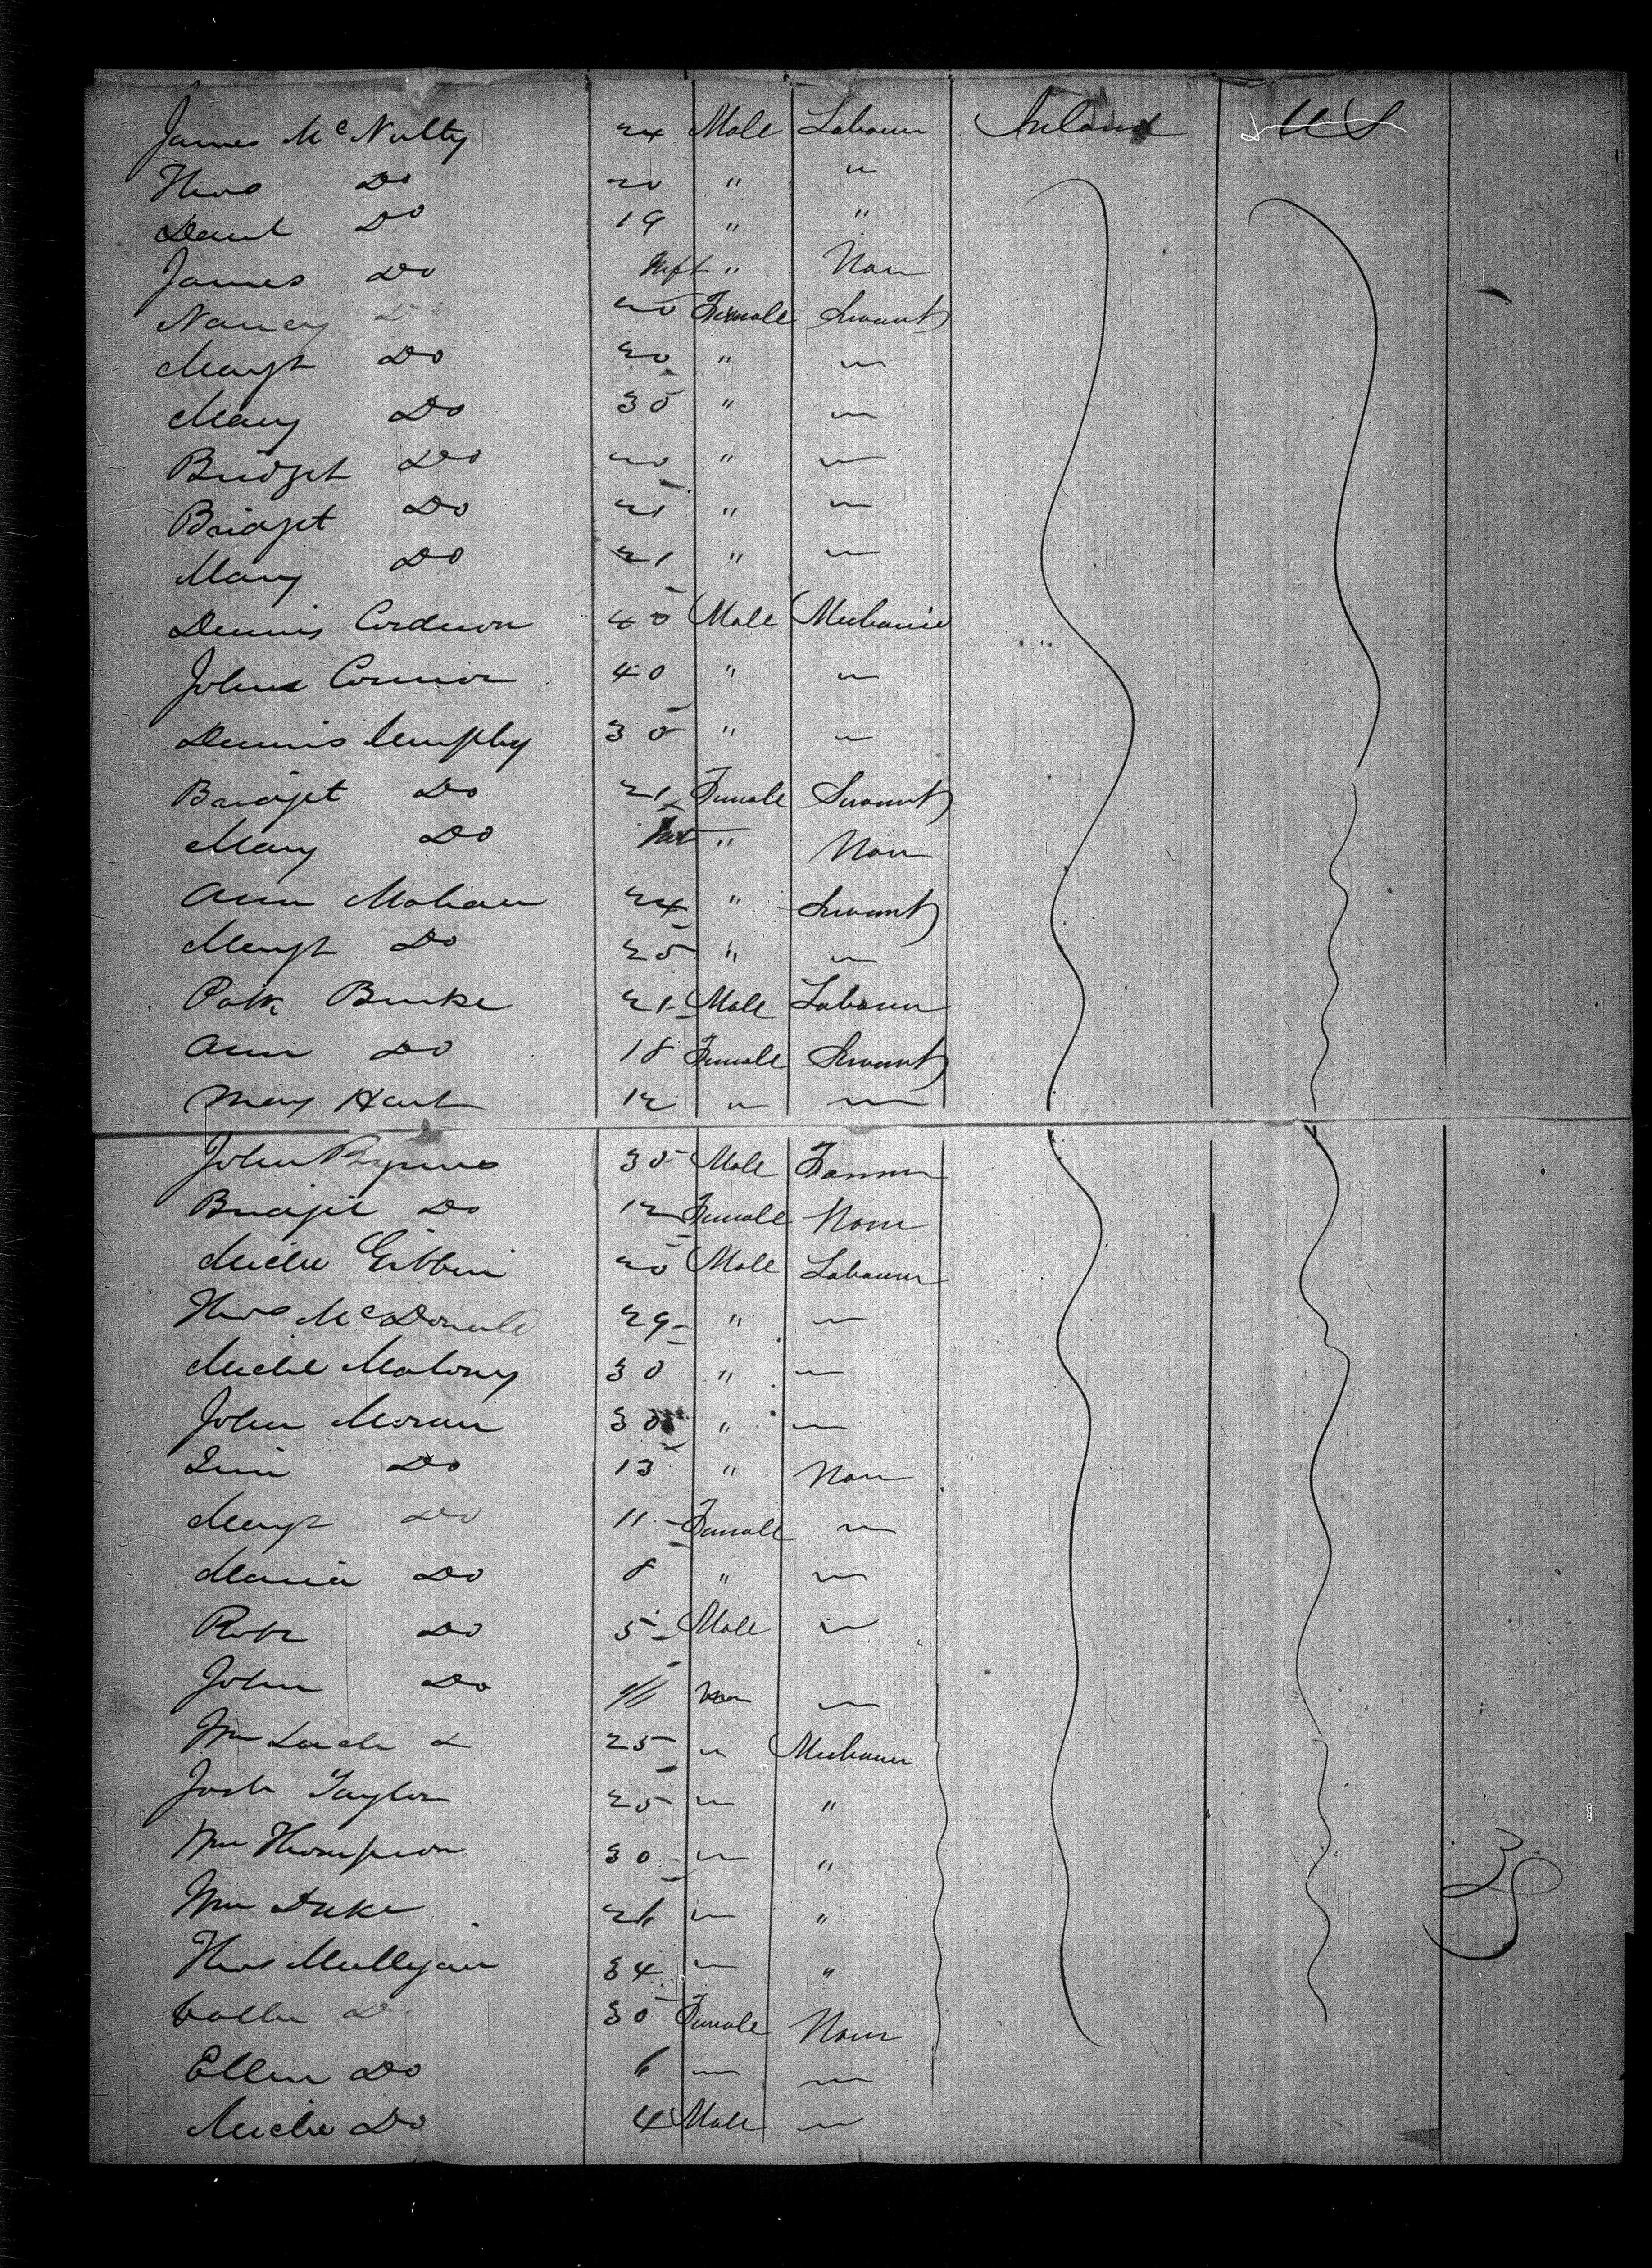 James McNulty 24 Male Labourer Ireland US
Thos Do 20 " "
Danl Do 19 " "
James Do Inft " Non
Nancy D 20 Female Servant
Margt Do 20 " "
Mary Do 30 " "
Bridget Do 20 " "
Bridget Do 21 " "
Mary Do 21 " "
Dennis 40 Male Mechanic
John Connor 40 " "
Dennis Murphy 30 " "
Bridget Do 21 Female Servant
Mary Do Inft " Non
Ann Mahan 24 " Servant
Margt Do 25 " "
Patk Burke 21 Male Labourer
Ann Do 18 Female Servant
Mary Hart 12 " "
John Byrnes 35 Male Farmer
Bridget Do 12 Female Non
Michl Gibbin 20 Male Labourer
Thos McDonald 29 " "
Michl Malony 30 " "
John Moran 30 " "
Do 13 " Non
Margt Do 11 Female "
Maria Do 8 " "
Robt Do 5 Male "
John Do "
Wm 25 " Mechanic
Josh Taylor 25 " "
Wm Thompson 30 " "
Wm Duke 26 " "
Thos Mulligan 34 " "
D 30 Female Non
Ellen Do 6 " "
Michl Do 4 Male "